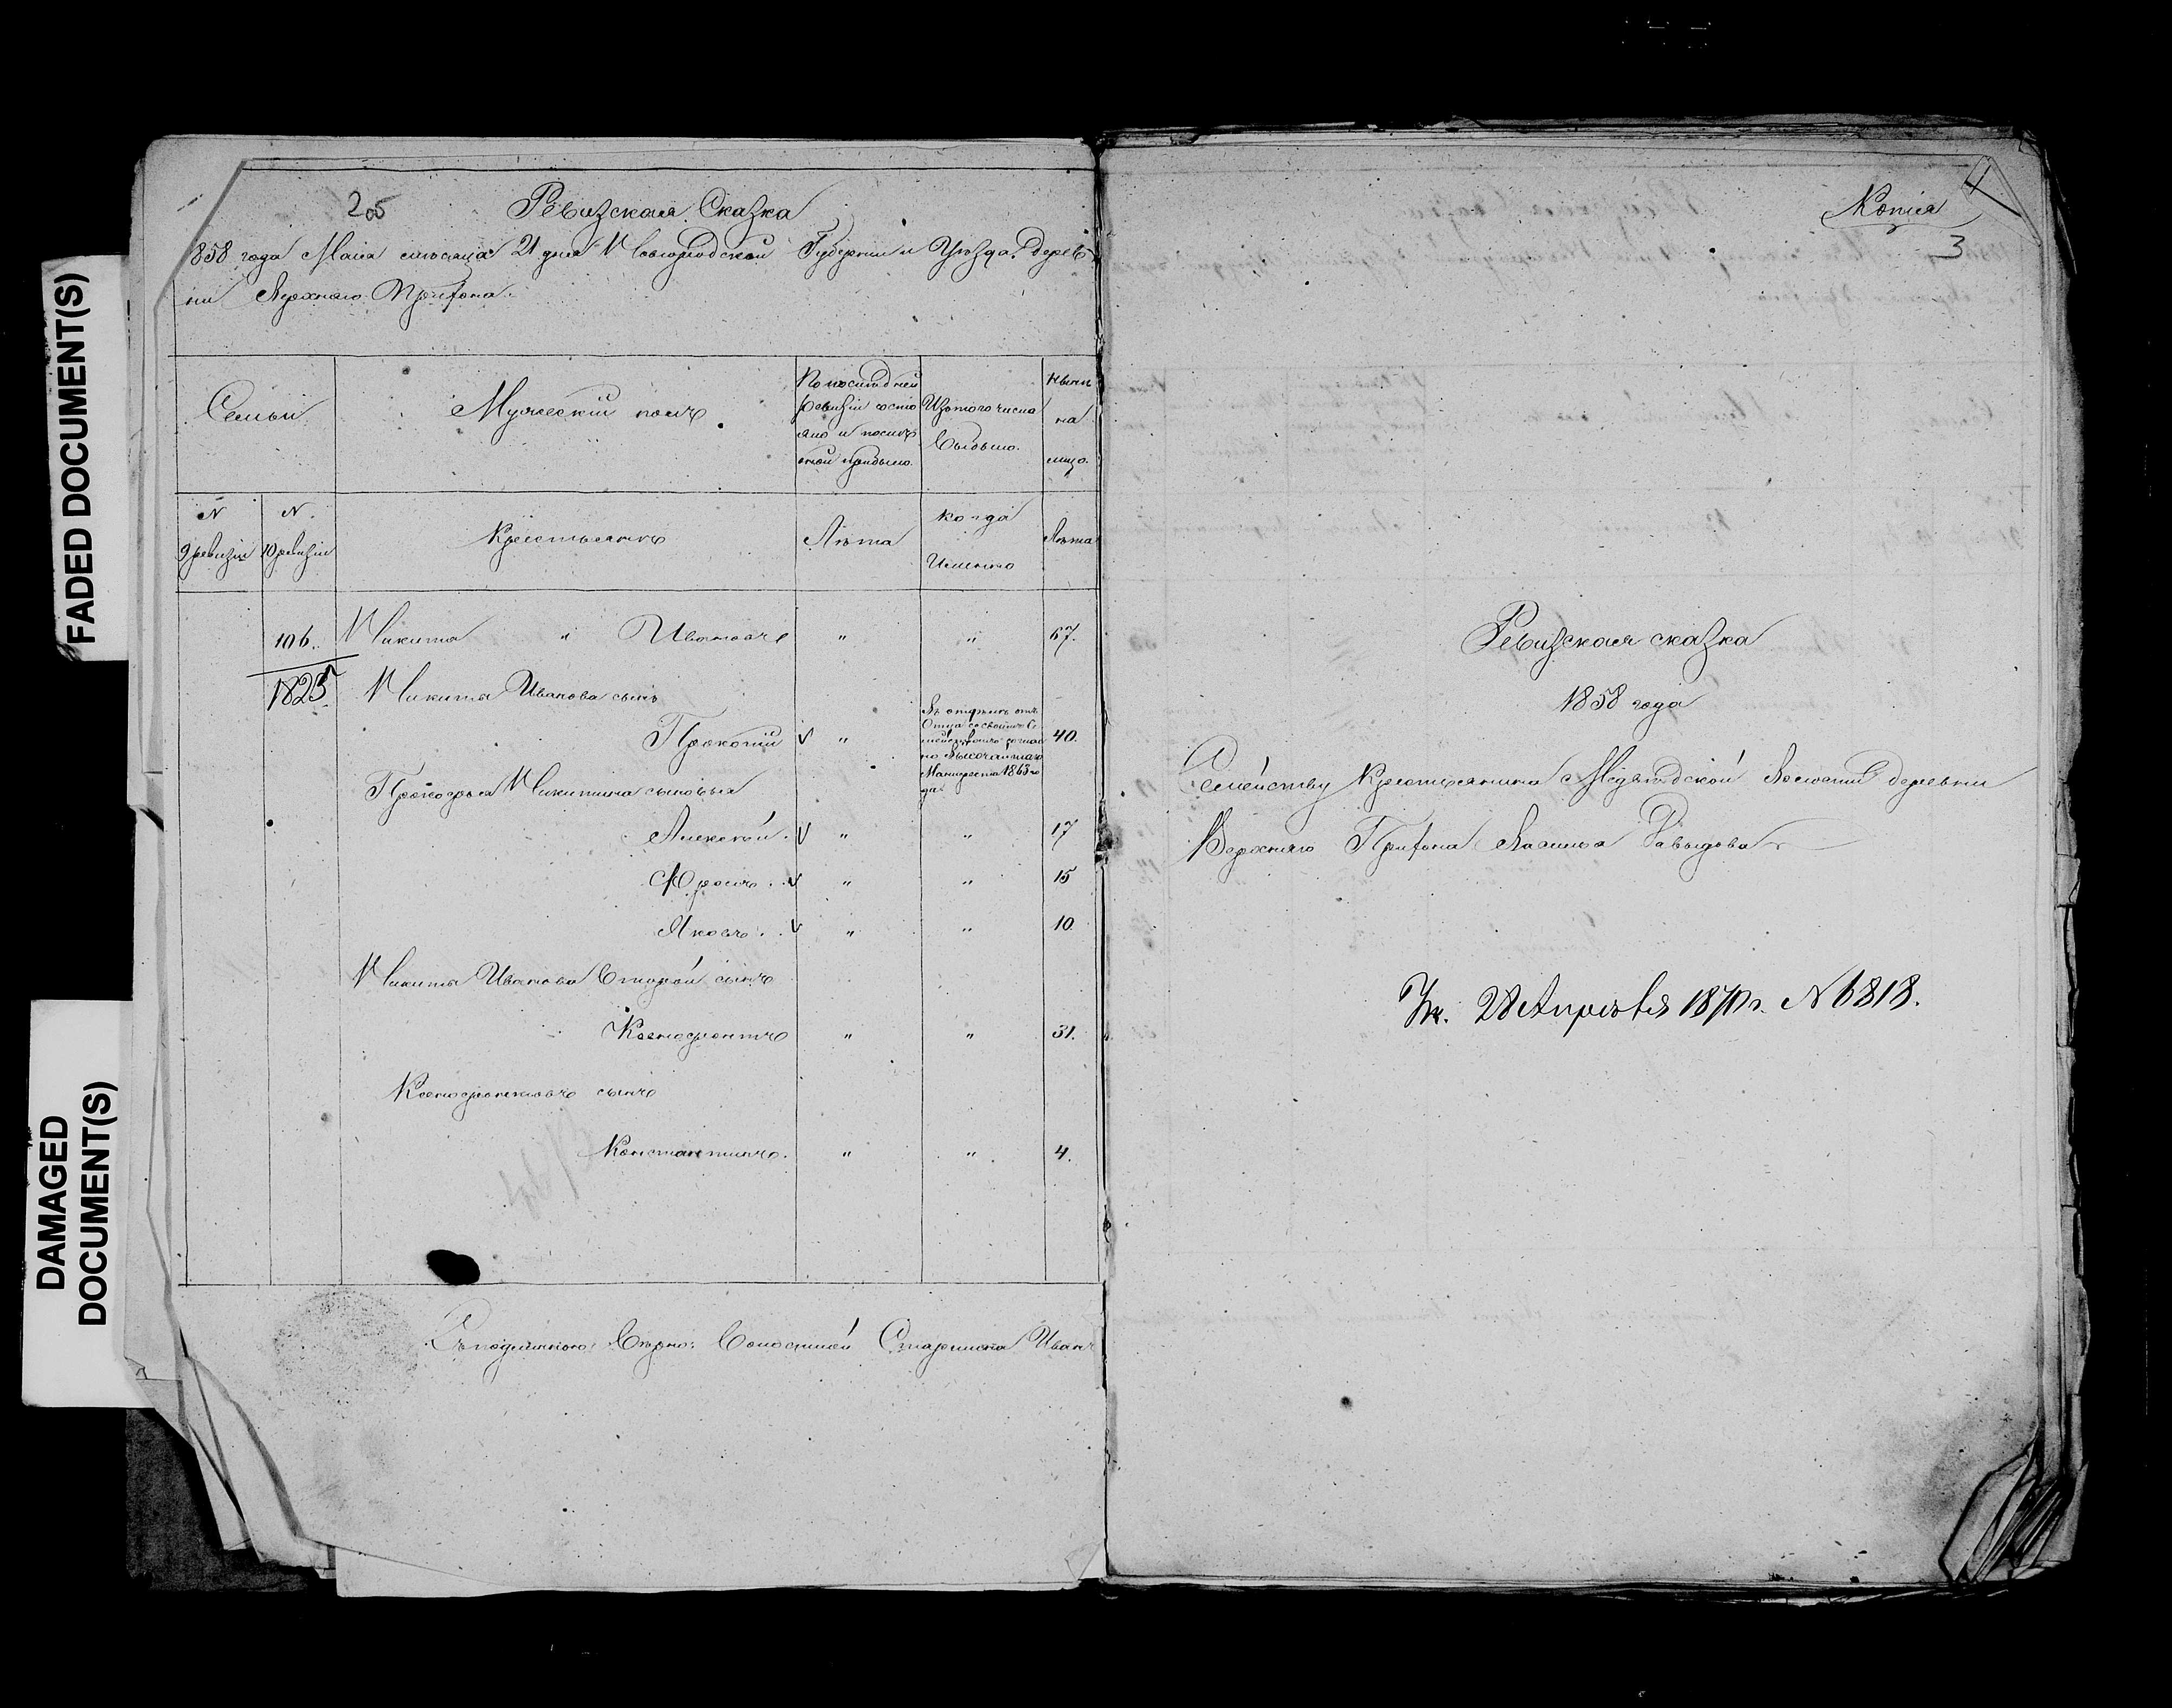 FADED DOCUMENT(S)
DAMAGED
DOCUMENT(S)
205
Ревизская Сказка
1858 года Маія мѣсяца 21 дня Новгородской Губерніи и Уѣзда дерев
ни Верхняго Прихона.
Семьи
Мужескій полъ
По послѣдней
ревизіи состо
яло и послѣ
оной прибыло.
Изъ того числа
выбыло.
Нынѣ
на
лицо.
N
9 ревизіи
N.
10 ревизіи
Крестьянъ
Лѣта
когда
Именно
Лѣта
106. Никита " Ивановъ " " 67.
1825
Никиты Иванова сынъ
Прокопій v " 40.
Въ отдѣлѣ отъ
Отца со своимъ Се
мействомъ соглас
но Высочайшаго
Манифеста 1863 го
да
Прокофья Никитина сыновья
Алексѣй. v " " 17
Фролъ. v " " 15
Яковъ. v " " 10
Никиты Иванова Второй сынъ
Ксенофонтъ " " 31.
Ксенофонтовъ сынъ
Константинъ. " " 4.
Съ подлиннымъ вѣрно: Волостной Старшина Иванъ
Копія
4
3
Ревизская сказка
1858 года
Семейству Крестьянина Медвѣдской Волости деревни
Верхняго Прихона Василья Давыдова
28 Апрѣля 1870 г. N 6818.